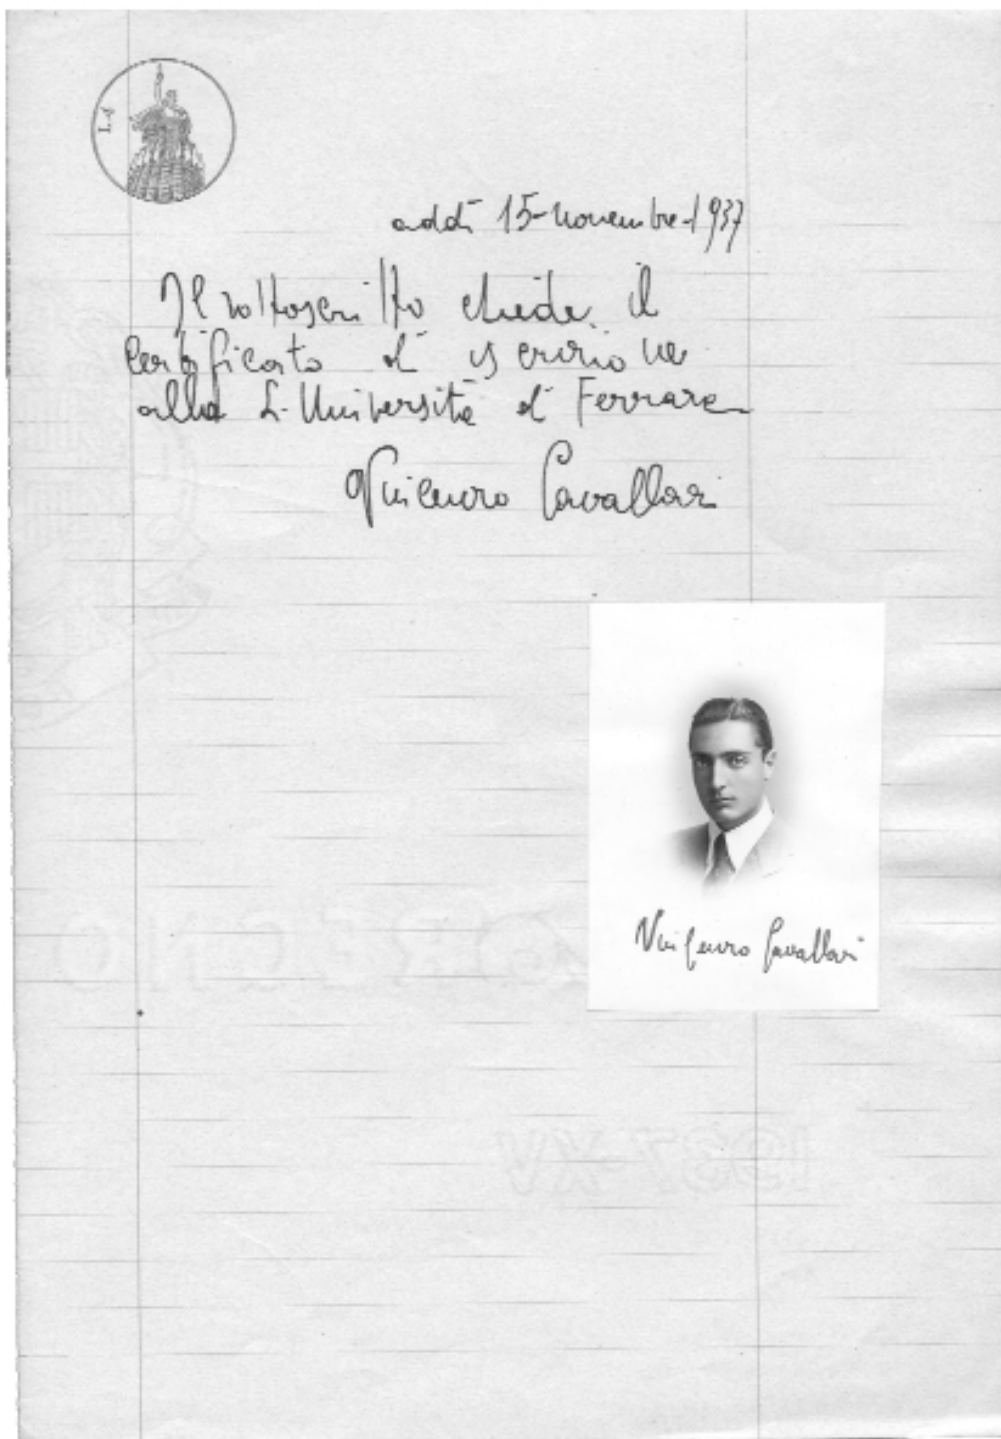 L. 4
addì 15-novembre-1937
Il sottoscritto chiede il
certificato di iscrizione
alla L. Università di Ferrara
Vincenzo Cavallari
Vincenzo Cavallari
REGNO
1937-XV